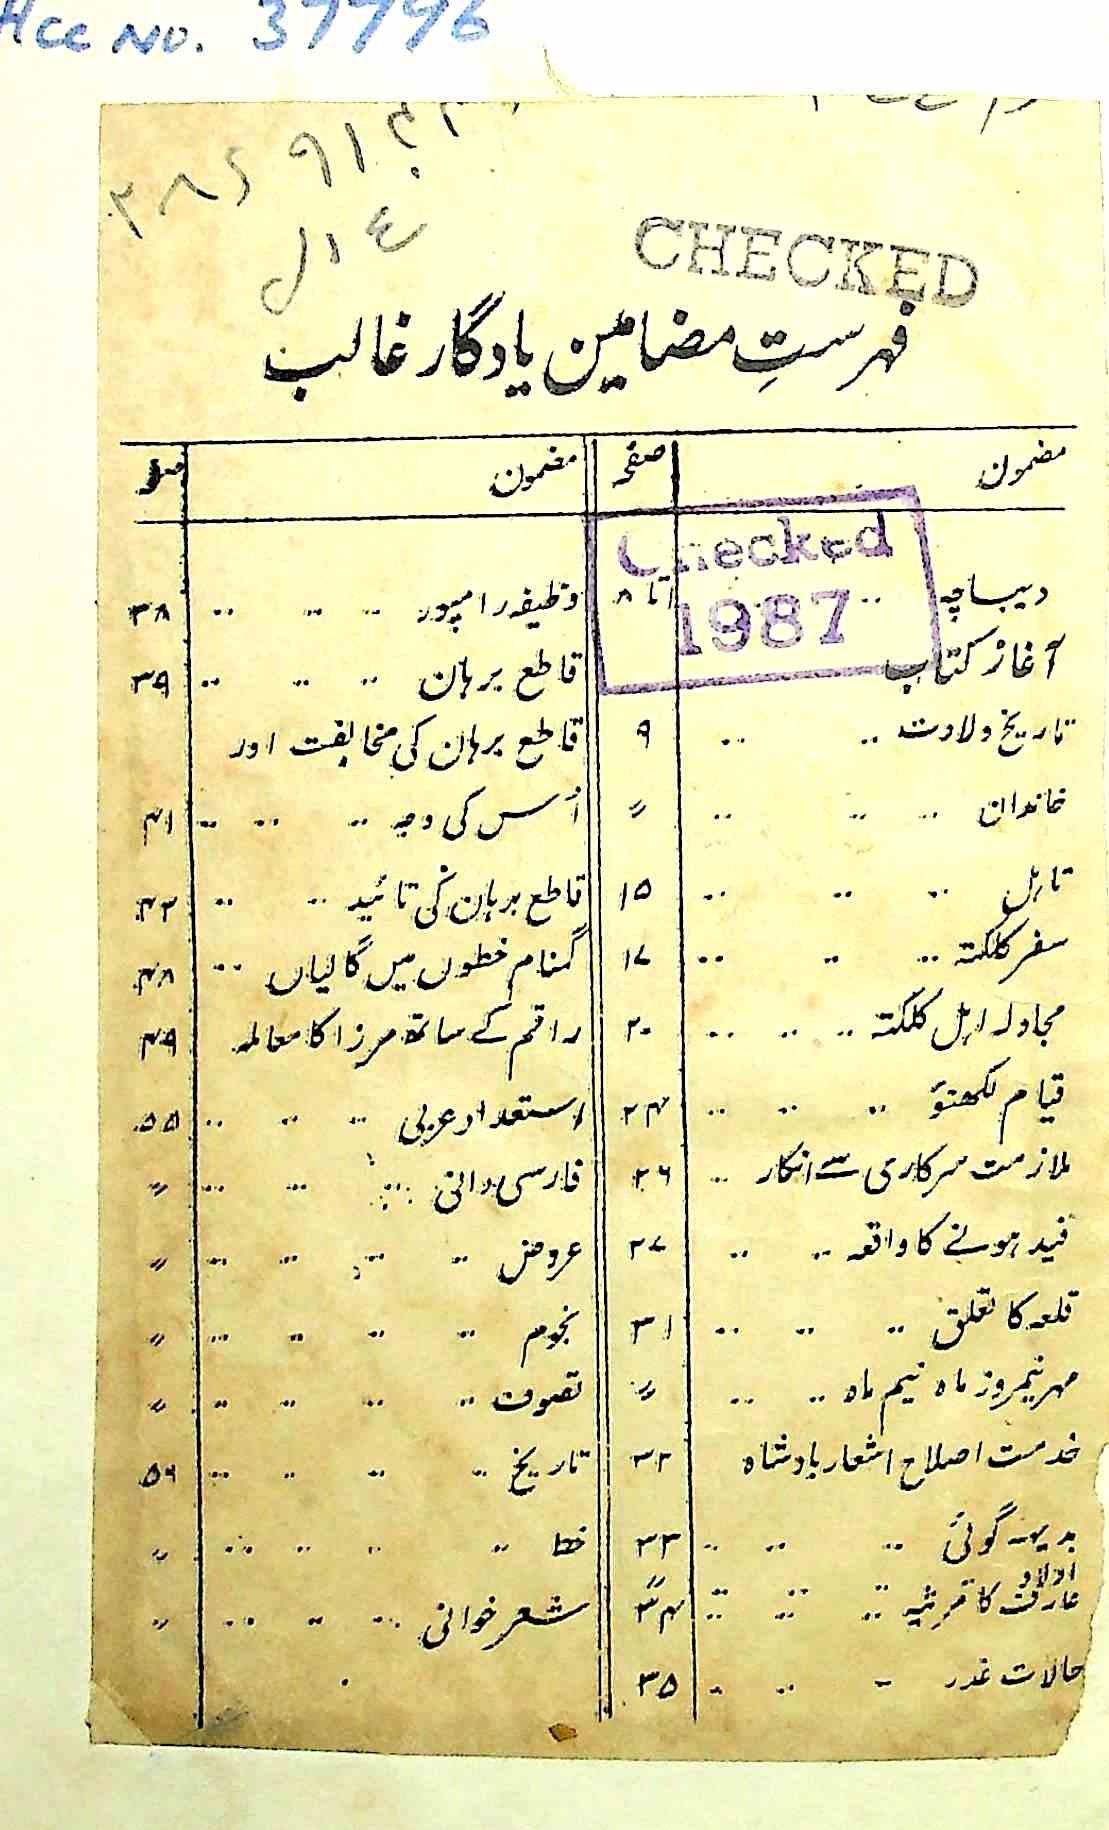 Acc No. 37996
CHECKED
فہرستِ مضامین یادگار غالب
مضمون صفحہ
Checked
1987
دیباچہ ۱ تا ۸
آغاز کتاب
تاریخ ولادت ۹
خاندان ״
تاہل ۱۵
سفر کلکتہ ۱۷
مجادلہ اہل کلکتہ ۲۰
قیام لکھنؤ ۲۴
ملازمت سرکاری سے انکار ۲۶
قید ہونے کا واقعہ ۲۷
قلعہ کا تعلق ۳۱
مہر نیمروز ماہ نیم ماہ ״
خدمت اصلاح اشعار بادشاہ ۳۲
بدیہہ گوئی ۳۳
اولاد ״
عارف کا مرثیہ ۳۴
حالات غدر ۳۵
مضمون صفحہ
وظیفہ رامپور ۳۸
قاطع برہان ۳۹
قاطع برہان کی مخالفت اور
اُس کی وجہ ۴۱
قاطع برہان کی تائید ۴۲
گمنام خطوں میں گالیاں ۴۸
راقم کے ساتھ مرزا کا معاملہ ۴۹
استعداد عربی ۵۵
فارسی دانی ״
عروض ״
نجوم ״
تصوف ״
تاریخ ۵۶
خط ״
شعر خوانی ״